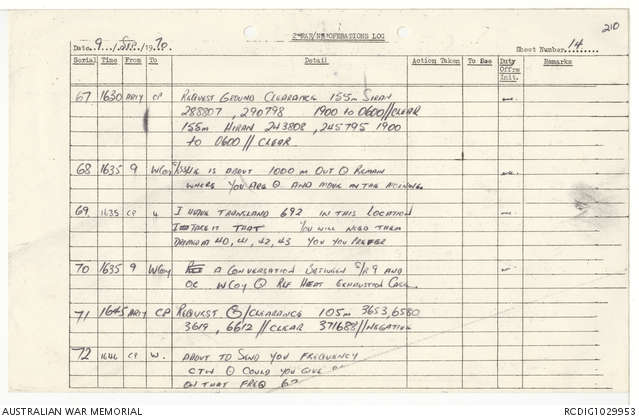 210
2 RAR/NZ OPERATIONS LOG
Date 9 / SEP / 1970 Sheet Number 14
Serial Time From To Detail Action Taken To Due Duty Offrs Init. Remarks
67 1630 ARTY CP REQUEST GROUND CLEARANCE 155m SIRAN
288807, 290798 1900 to 0600//CLEAR
155m HIRAN 243808, 245795 1900
to 0600//CLEAR
68 1635 9 WCoy IS ABOUT 1000 m OUT REMAIN
WHERE YOU ARE AND MOVE IN THE MORNING
69 1635 CP 4 I HAVE 692 IN THIS LOCATION
I TAKE IT THAT YOU WILL NEED THEM
40, 41, 42, 43 YOU YOU PREFER
70 1635 9 WCoy A CONVERSATION BETWEEN 9 AND
OC WCoy REF HEAT EXHAUSTION CASE.
71 1645 ARTY CP REQUEST /CLEARANCE 105m 3653, 6580
3619, 6612//CLEAR 371688//NEGATIVE
72 1646 CP W. ABOUT TO SEND YOU FREQUENCY
CTW COULD YOU GIVE
ON THAT FREQ
AUSTRALIAN WAR MEMORIAL RCDIG1029953